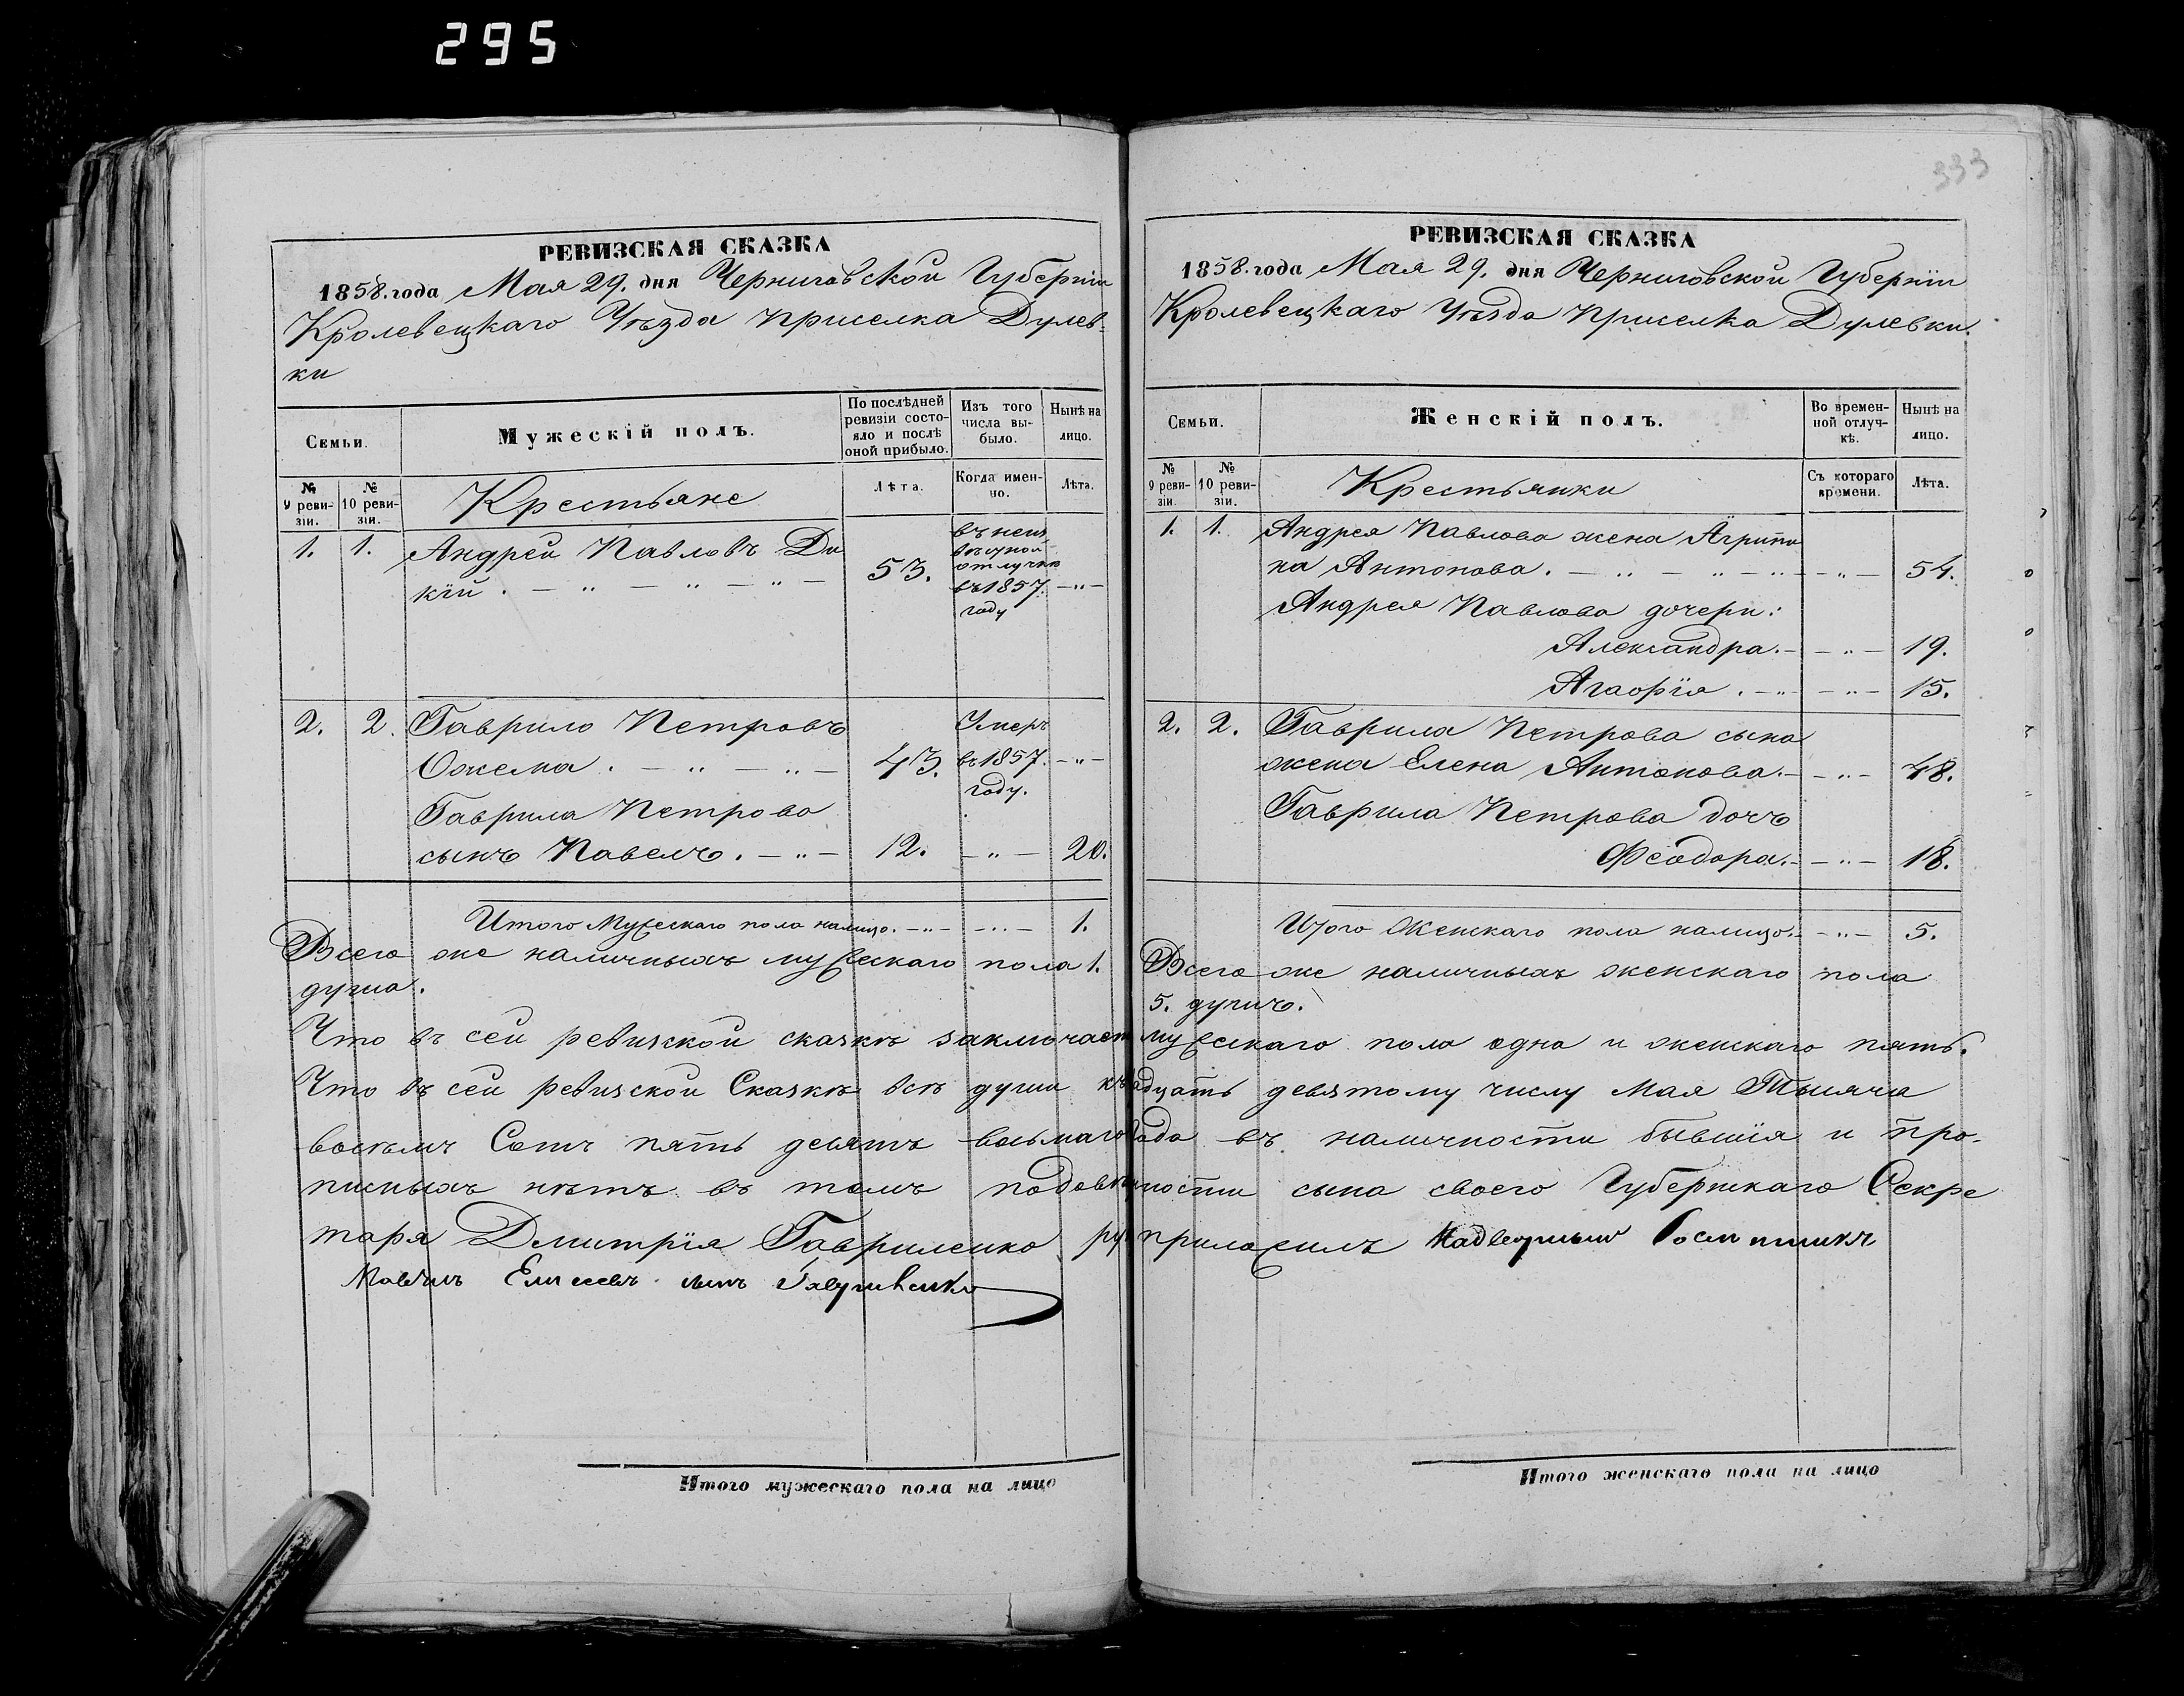 295
РЕВИЗСКАЯ СКАЗКА
1858. года Мая 29. дня Черниговской Губерніи
Кролевецкаго Уѣзда приселка Дулев-
ки
Семьи.
Мужескій полъ.
По послѣдней ревизіи состояло и послѣ оной прибыло.
Изъ того числа выбыло.
Нынѣ на лицо.
№ 9 ревизіи.
№ 10 ревизіи.
Крестьяне
Лѣта.
Когда именно.
Лѣта.
1. 1. Андрей Павловъ Ди
кій . — „ — „ — „ — 53. въ неиз
вѣсной
отлучке
въ 1857. — „ —
году
2. 2. Гаврило Петровъ Умеръ
Ожема . — „ — „ — 43. въ 1857. — „ —
году.
Гаврила Петрова
сынъ Павелъ. — „ — 12. — „ — 20.
Итого Мужескаго пола налицо. — „ — — „ — 1.
Всего же наличныхъ мужескаго пола 1.
душа.
Что въ сей ревизской сказкѣ заключает
Что въ сей ревизской Сказкѣ всѣ души къ
восемъ Сотъ пять десятъ восьмаго
писныхъ нѣтъ въ томъ
таря Дмитрія Гавриленко
Итого мужескаго пола на лицо
333
РЕВИЗСКАЯ СКАЗКА
1858. года Мая 29. дня Черниговской Губерніи
Кролевецкаго Уѣзда приселка Дулевки.
Семьи.
Женскій полъ.
Во временной отлучкѣ.
Нынѣ на лицо.
№ 9 ревизіи.
№ 10 ревизіи.
Крестьянки
Съ котораго времени.
Лѣта.
1. 1. Андрея Павлова жена Агрипи
на Антонова. — „ — „ — „ — — „ — 54.
Андрея Павлова дочери:
Александра. — — „ — 19.
Агафія . — „ — — „ — 15.
2. 2. Гаврила Петрова сына
жена Елена Антонова. — — „ — 48.
Гаврила Петрова дочъ
Феодора. — — „ — 18.
Итого Женскаго пола налицо. — — „ — 5.
Всего же наличныхъ женскаго пола
5. душъ.
мужескаго пола одна и женскаго пять.
дцать девятому числу Мая Тысяча
года въ наличности бывшія и про-
ности сына своего Губернскаго Секре
приложилъ Надворный
Итого женскаго пола на лицо